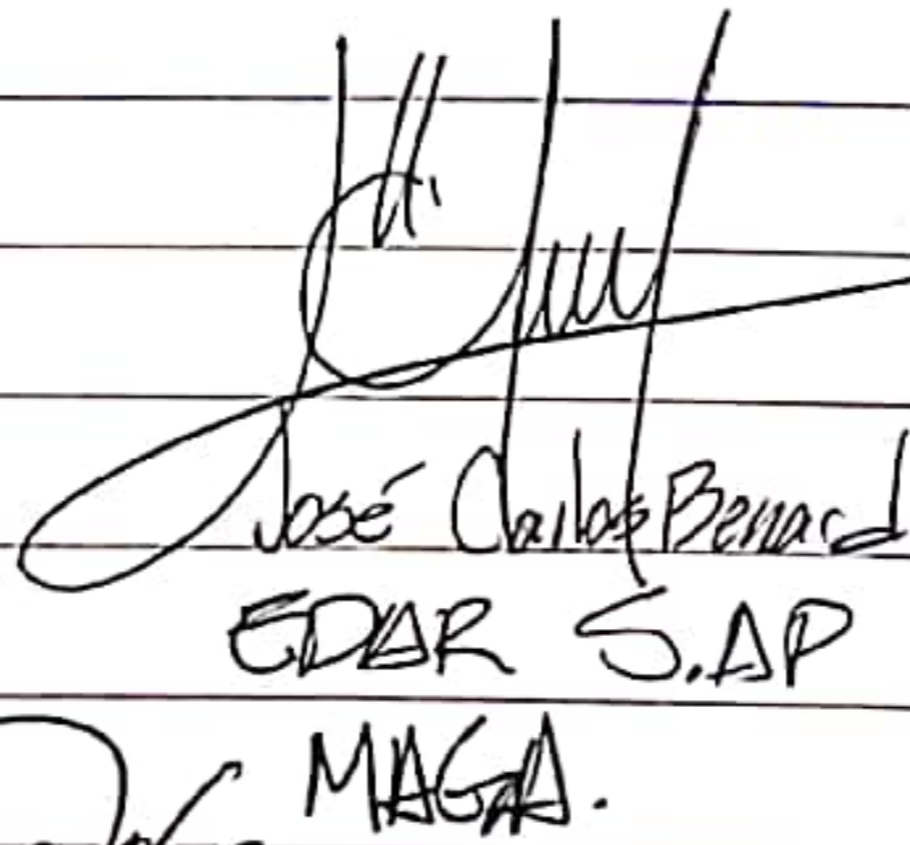 José Carlos Benard
EDAR S.AP
MAGA.